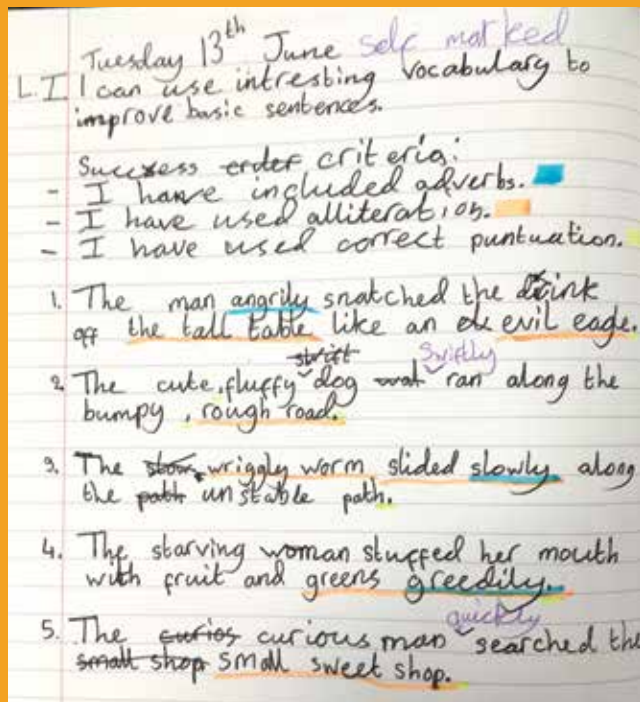 Tuesday 13th June self marked
L.I I can use intresting vocabulary to
improve basic sentences.
Success order criteria:
- I have included adverbs.
- I have used alliteration.
- I have used correct puntuation.
1. The man angrily snatched the drink
off the tall table like an evil eagle.
swift swiftly
2. The cute, fluffy dog wat ran along the
bumpy, rough road.
3. The slow, wriggly worm slided slowly along
the path unstable path.
4. The starving woman stuffed her mouth
with fruit and greens greedily.
quickly
5. The curios curious man searched the
small shop small sweet shop.